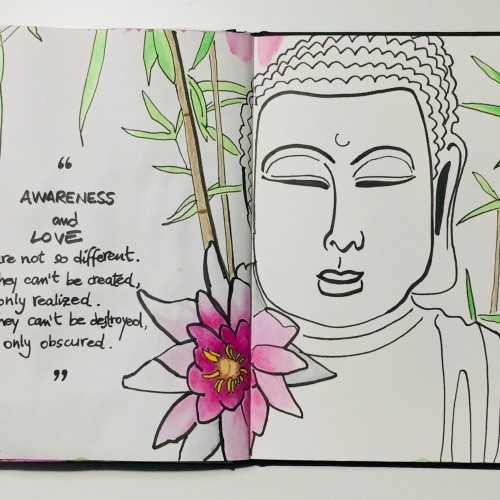 “
AWARENESS
and
LOVE
are not so different.
They can't be created,
only realized.
They can't be destroyed,
only obscured.
”